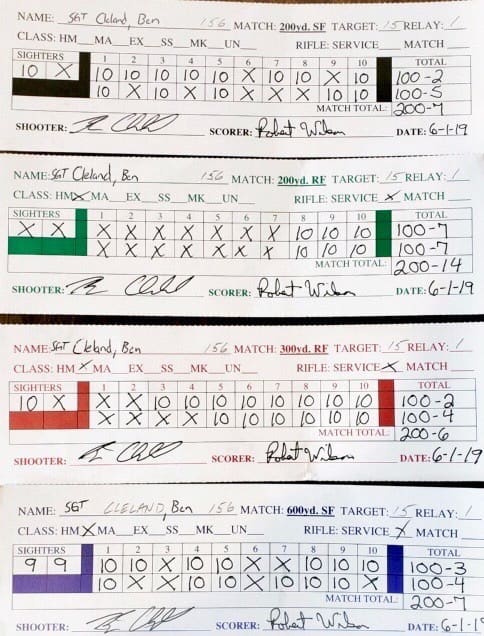 NAME: SGT Cleland, Ben 156 MATCH: 200yd. SF TARGET: 15 RELAY: 1
CLASS: HM MA EX SS MK UN RIFLE: SERVICE MATCH
SIGHTERS 1 2 3 4 5 6 7 8 9 10 TOTAL
10 X 10 10 10 10 10 X 10 10 X 10 100-2
10 X 10 X 10 X X X 10 10 100-5
MATCH TOTAL: 200-7
SHOOTER: SCORER: Robert Wilson DATE: 6-1-19
NAME: SGT Cleland, Ben 156 MATCH: 200yd. RF TARGET: 15 RELAY: 1
CLASS: HM X MA EX SS MK UN RIFLE: SERVICE X MATCH
SIGHTERS 1 2 3 4 5 6 7 8 9 10 TOTAL
X X X X X X X X X 10 10 10 100-7
X X X X X X X 10 10 10 100-7
MATCH TOTAL: 200-14
SHOOTER: SCORER: Robert Wilson DATE: 6-1-19
NAME: SGT Cleland, Ben 156 MATCH: 300yd. RF TARGET: 15 RELAY: 1
CLASS: HM X MA EX SS MK UN RIFLE: SERVICE X MATCH
SIGHTERS 1 2 3 4 5 6 7 8 9 10 TOTAL
10 X X X 10 10 10 10 10 10 10 10 100-2
X X X X 10 10 10 10 10 10 100-4
MATCH TOTAL: 200-6
SHOOTER: SCORER: Robert Wilson DATE: 6-1-19
NAME: SGT CLELAND, Ben 156 MATCH: 600yd. SF TARGET: 15 RELAY: 1
CLASS: HM X MA EX SS MK UN RIFLE: SERVICE X MATCH
SIGHTERS 1 2 3 4 5 6 7 8 9 10 TOTAL
9 9 10 10 X 10 10 X X 10 10 10 100-3
10 X X 10 10 X 10 10 10 X 100-4
MATCH TOTAL: 200-7
SHOOTER: SCORER: Robert Wilson DATE: 6-1-19